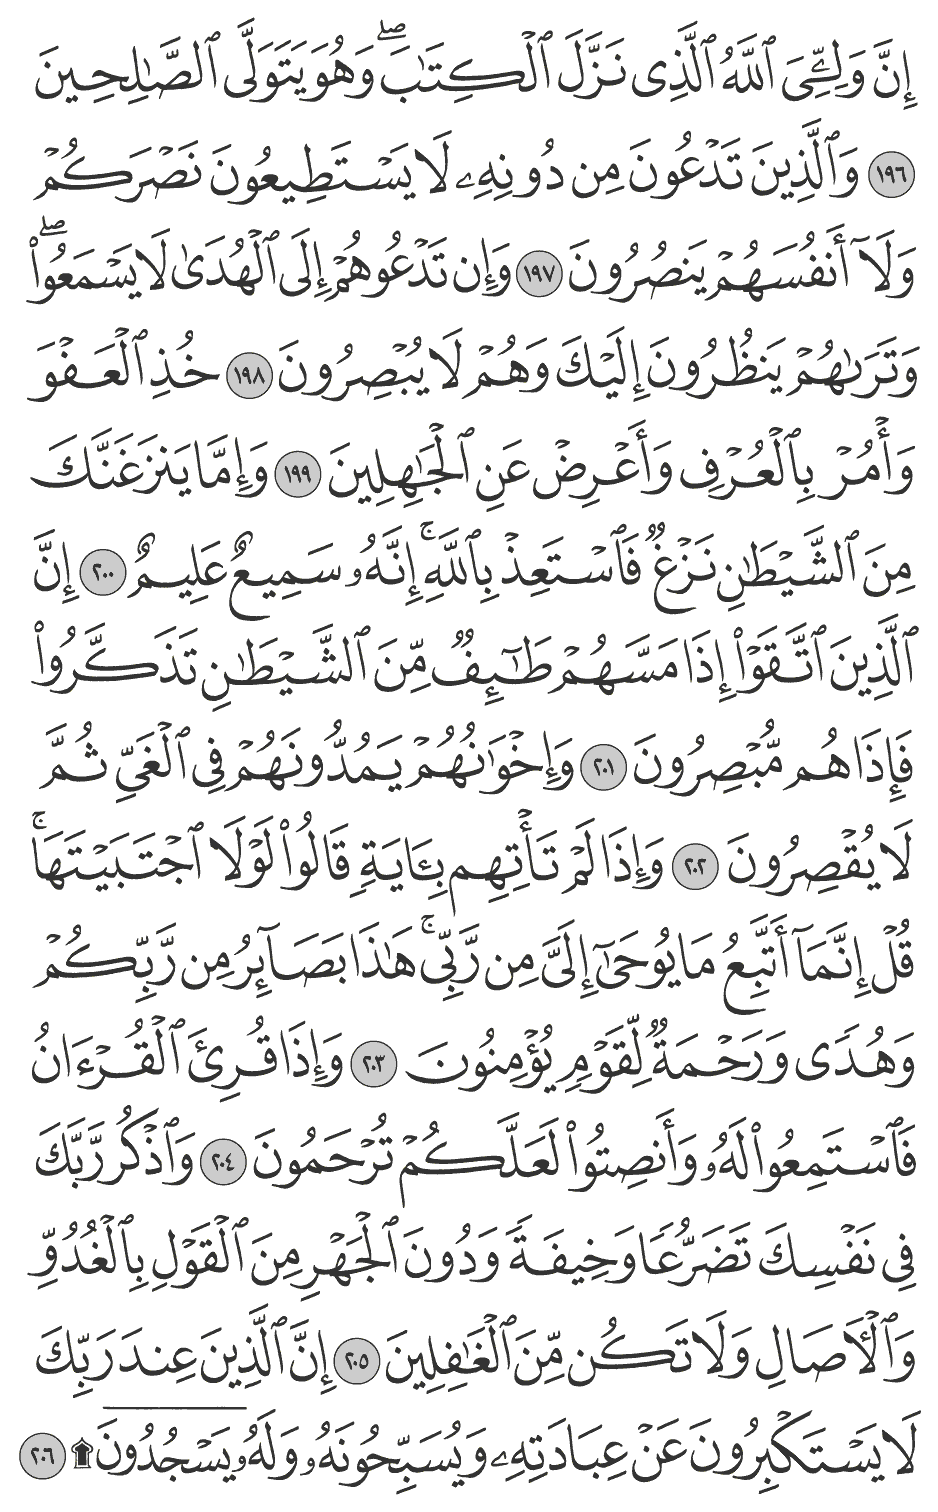 إِنَّ وَلِـِّۧيَ ٱللَّهُ ٱلَّذِي نَزَّلَ ٱلۡكِتَٰبَۖ وَهُوَ يَتَوَلَّى ٱلصَّٰلِحِينَ
١٩٦ وَٱلَّذِينَ تَدۡعُونَ مِن دُونِهِۦ لَا يَسۡتَطِيعُونَ نَصۡرَكُمۡ
وَلَآ أَنفُسَهُمۡ يَنصُرُونَ ١٩٧ وَإِن تَدۡعُوهُمۡ إِلَى ٱلۡهُدَىٰ لَا يَسۡمَعُواْۖ
وَتَرَىٰهُمۡ يَنظُرُونَ إِلَيۡكَ وَهُمۡ لَا يُبۡصِرُونَ ١٩٨ خُذِ ٱلۡعَفۡوَ
وَأۡمُرۡ بِٱلۡعُرۡفِ وَأَعۡرِضۡ عَنِ ٱلۡجَٰهِلِينَ ١٩٩ وَإِمَّا يَنزَغَنَّكَ
مِنَ ٱلشَّيۡطَٰنِ نَزۡغٞ فَٱسۡتَعِذۡ بِٱللَّهِۚ إِنَّهُۥ سَمِيعٌ عَلِيمٌ ٢٠٠ إِنَّ
ٱلَّذِينَ ٱتَّقَوۡاْ إِذَا مَسَّهُمۡ طَٰٓئِفٞ مِّنَ ٱلشَّيۡطَٰنِ تَذَكَّرُواْ
فَإِذَا هُم مُّبۡصِرُونَ ٢٠١ وَإِخۡوَٰنُهُمۡ يَمُدُّونَهُمۡ فِي ٱلۡغَيِّ ثُمَّ
لَا يُقۡصِرُونَ ٢٠٢ وَإِذَا لَمۡ تَأۡتِهِم بِـَٔايَةٖ قَالُواْ لَوۡلَا ٱجۡتَبَيۡتَهَاۚ
قُلۡ إِنَّمَآ أَتَّبِعُ مَا يُوحَىٰٓ إِلَيَّ مِن رَّبِّيۚ هَٰذَا بَصَآئِرُ مِن رَّبِّكُمۡ
وَهُدٗى وَرَحۡمَةٞ لِّقَوۡمٖ يُؤۡمِنُونَ ٢٠٣ وَإِذَا قُرِئَ ٱلۡقُرۡءَانُ
فَٱسۡتَمِعُواْ لَهُۥ وَأَنصِتُواْ لَعَلَّكُمۡ تُرۡحَمُونَ ٢٠٤ وَٱذۡكُر رَّبَّكَ
فِي نَفۡسِكَ تَضَرُّعٗا وَخِيفَةٗ وَدُونَ ٱلۡجَهۡرِ مِنَ ٱلۡقَوۡلِ بِٱلۡغُدُوِّ
وَٱلۡأٓصَالِ وَلَا تَكُن مِّنَ ٱلۡغَٰفِلِينَ ٢٠٥ إِنَّ ٱلَّذِينَ عِندَ رَبِّكَ
لَا يَسۡتَكۡبِرُونَ عَنۡ عِبَادَتِهِۦ وَيُسَبِّحُونَهُۥ وَلَهُۥ يَسۡجُدُونَ ۩ ٢٠٦